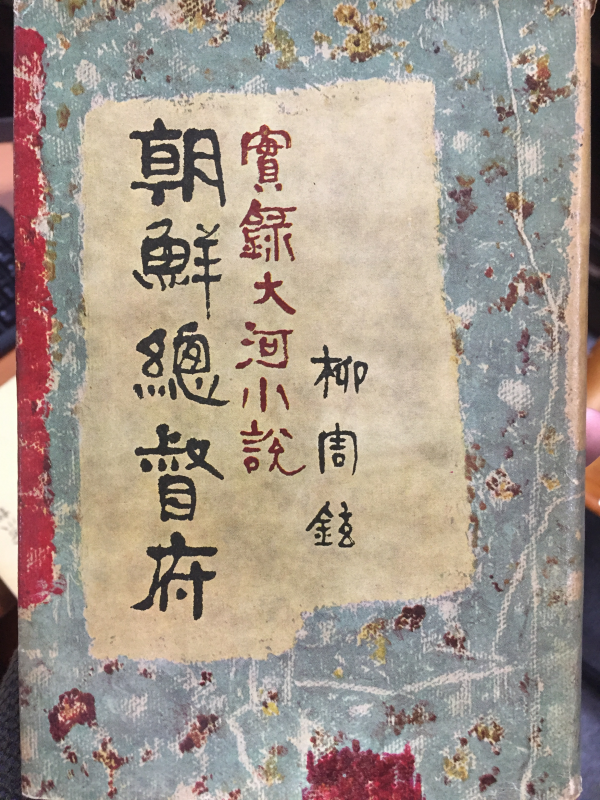 柳周鉉
實錄大河小說
朝鮮總督府